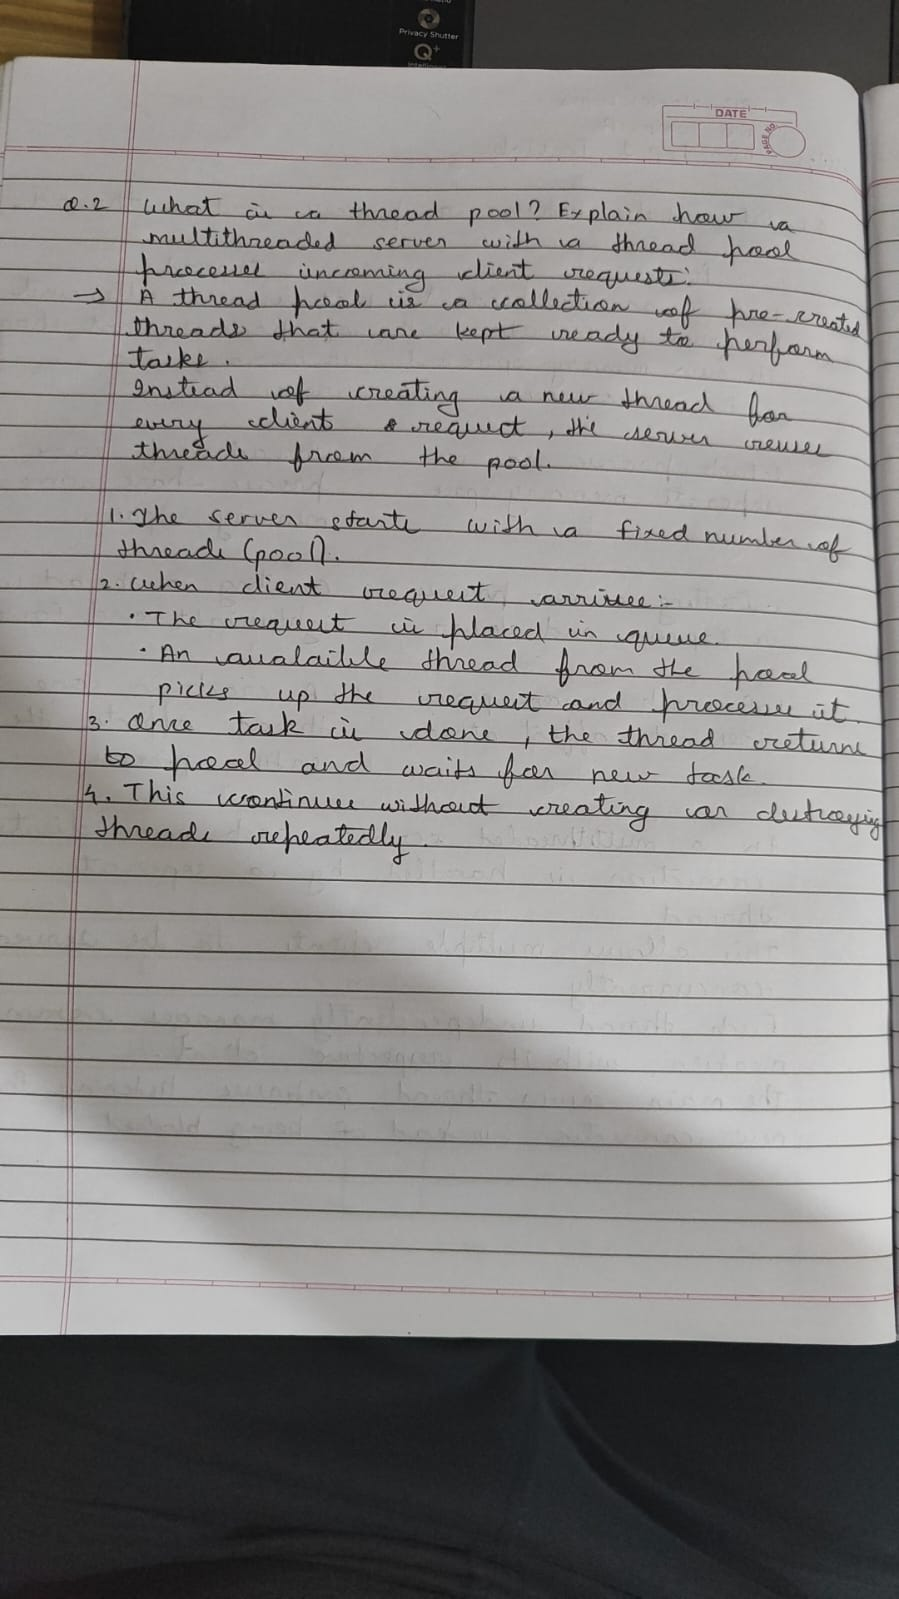 Privacy Shutter
Q+
DATE
PAGE NO.
Q.2 What is a thread pool? Explain how a
multithreaded server with a thread pool
processes incoming client requests.
→ A thread pool is a collection of pre-created
threads that are kept ready to perform
tasks.
Instead of creating a new thread for
every client request, the server reuses
threads from the pool.
1. The server starts with a fixed number of
threads (pool).
2. When client request arrives:-
• The request is placed in queue.
• An avalaible thread from the pool
picks up the request and processes it.
3. Once task is done, the thread returns
to pool and waits for new task.
4. This continues without creating or destroying
threads repeatedly.